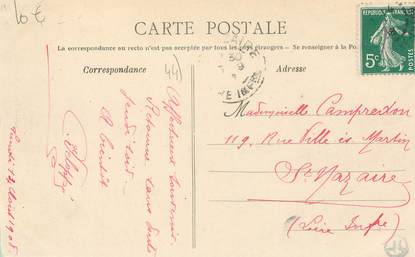 10€
CARTE POSTALE
La correspondance au recto n'est pas acceptée par tous les pays étrangers — Se renseigner à la Po
Correspondance
Adresse
44
RÉPUBLIQUE FRANÇAISE
5c
POSTES
Affectueux souvenir.
Retourne sans
Jeudi soir.
A bientôt
Lundi 12 1908
Mademoiselle Campredon
119, Rue Ville ès Martin
St Nazaire
(Loire Infre)